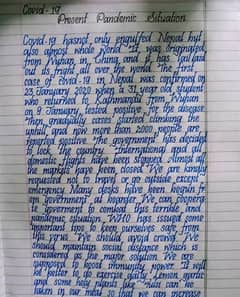 Covid-19
Present Pandemic Situation
Covid-19 hasnot only engulfed Nepal but
also almost whole world. It was originated
from Wuhan, in China, and it has spread
out its fright all over the world. The first
case of covid-19 in Nepal was confirmed on
23 January 2020 when a 31 year old student
who returned to Kathmandu from Wuhan
on 9 January, tested positive for the disease
Then gradually cases started climbing the
uphill and now more than 2000 people are
reported positive. The government has decided
to lock the country. International and all
domestic flights have been stopped. Almost all
the markets have been closed. We are kindly
requested not to travel or go outside except in
emergency. Many desks have been begun from
government at border. We can cooperate
government to combat this terrible and
pandemic situation. WHO has issued some
important tips to keep ourselves safe from
this virus. We should avoid crowd. We
should maintain social distance which is
considered as the major solution. We are
supposed to boost immunity power. It will
be better to exercise daily. Lemon, garlic
and some holy plants like can be
taken in our meal so that we can increase